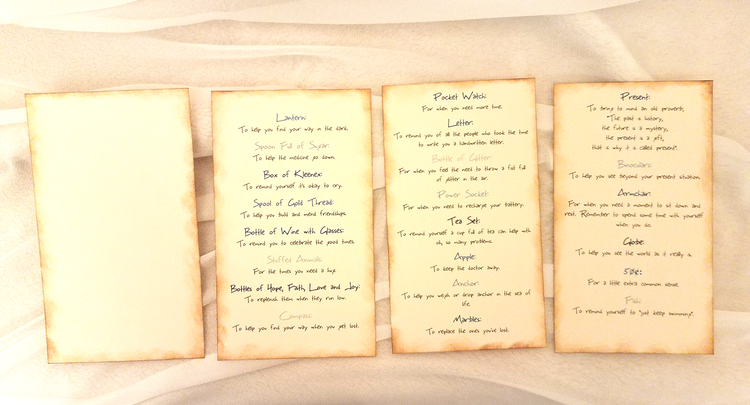 Lantern:
To help you find your way in the dark.
Spoon Full of Sugar:
To help the medicine go down.
Box of Kleenex:
To remind yourself it's okay to cry.
Spool of Gold Thread:
To help you build and mend friendships.
Bottle of Wine with Glasses:
To remind you to celebrate the good times.
Stuffed Animals:
For the times you need a hug.
Bottles of Hope, Faith, Love and Joy:
To replenish them when they run low.
Compass:
To help you find your way when you get lost.
Pocket Watch:
For when you need more time.
Letter:
To remind you of all the people who took the time
to write you a handwritten letter.
Bottle of Glitter:
For when you feel the need to throw a fist full
of glitter in the air.
Power Socket:
For when you need to recharge your battery.
Tea Set:
To remind yourself a cup full of tea can help with
oh, so many problems.
Apple:
To keep the doctor away.
Anchor:
To help you weigh or drop anchor in the sea of
life.
Marbles:
To replace the ones you've lost.
Present:
To bring to mind an old proverb;
"The past is history,
the future is a mystery,
the present is a gift,
that is why it is called present".
Binoculars:
To help you see beyond your present situation.
Armchair:
For when you need a moment to sit down and
rest. Remember to spend some time with yourself
when you sit.
Globe:
To help you see the world as it really is.
50¢:
For a little extra common sense.
Fish:
To remind yourself to "just keep swimming".